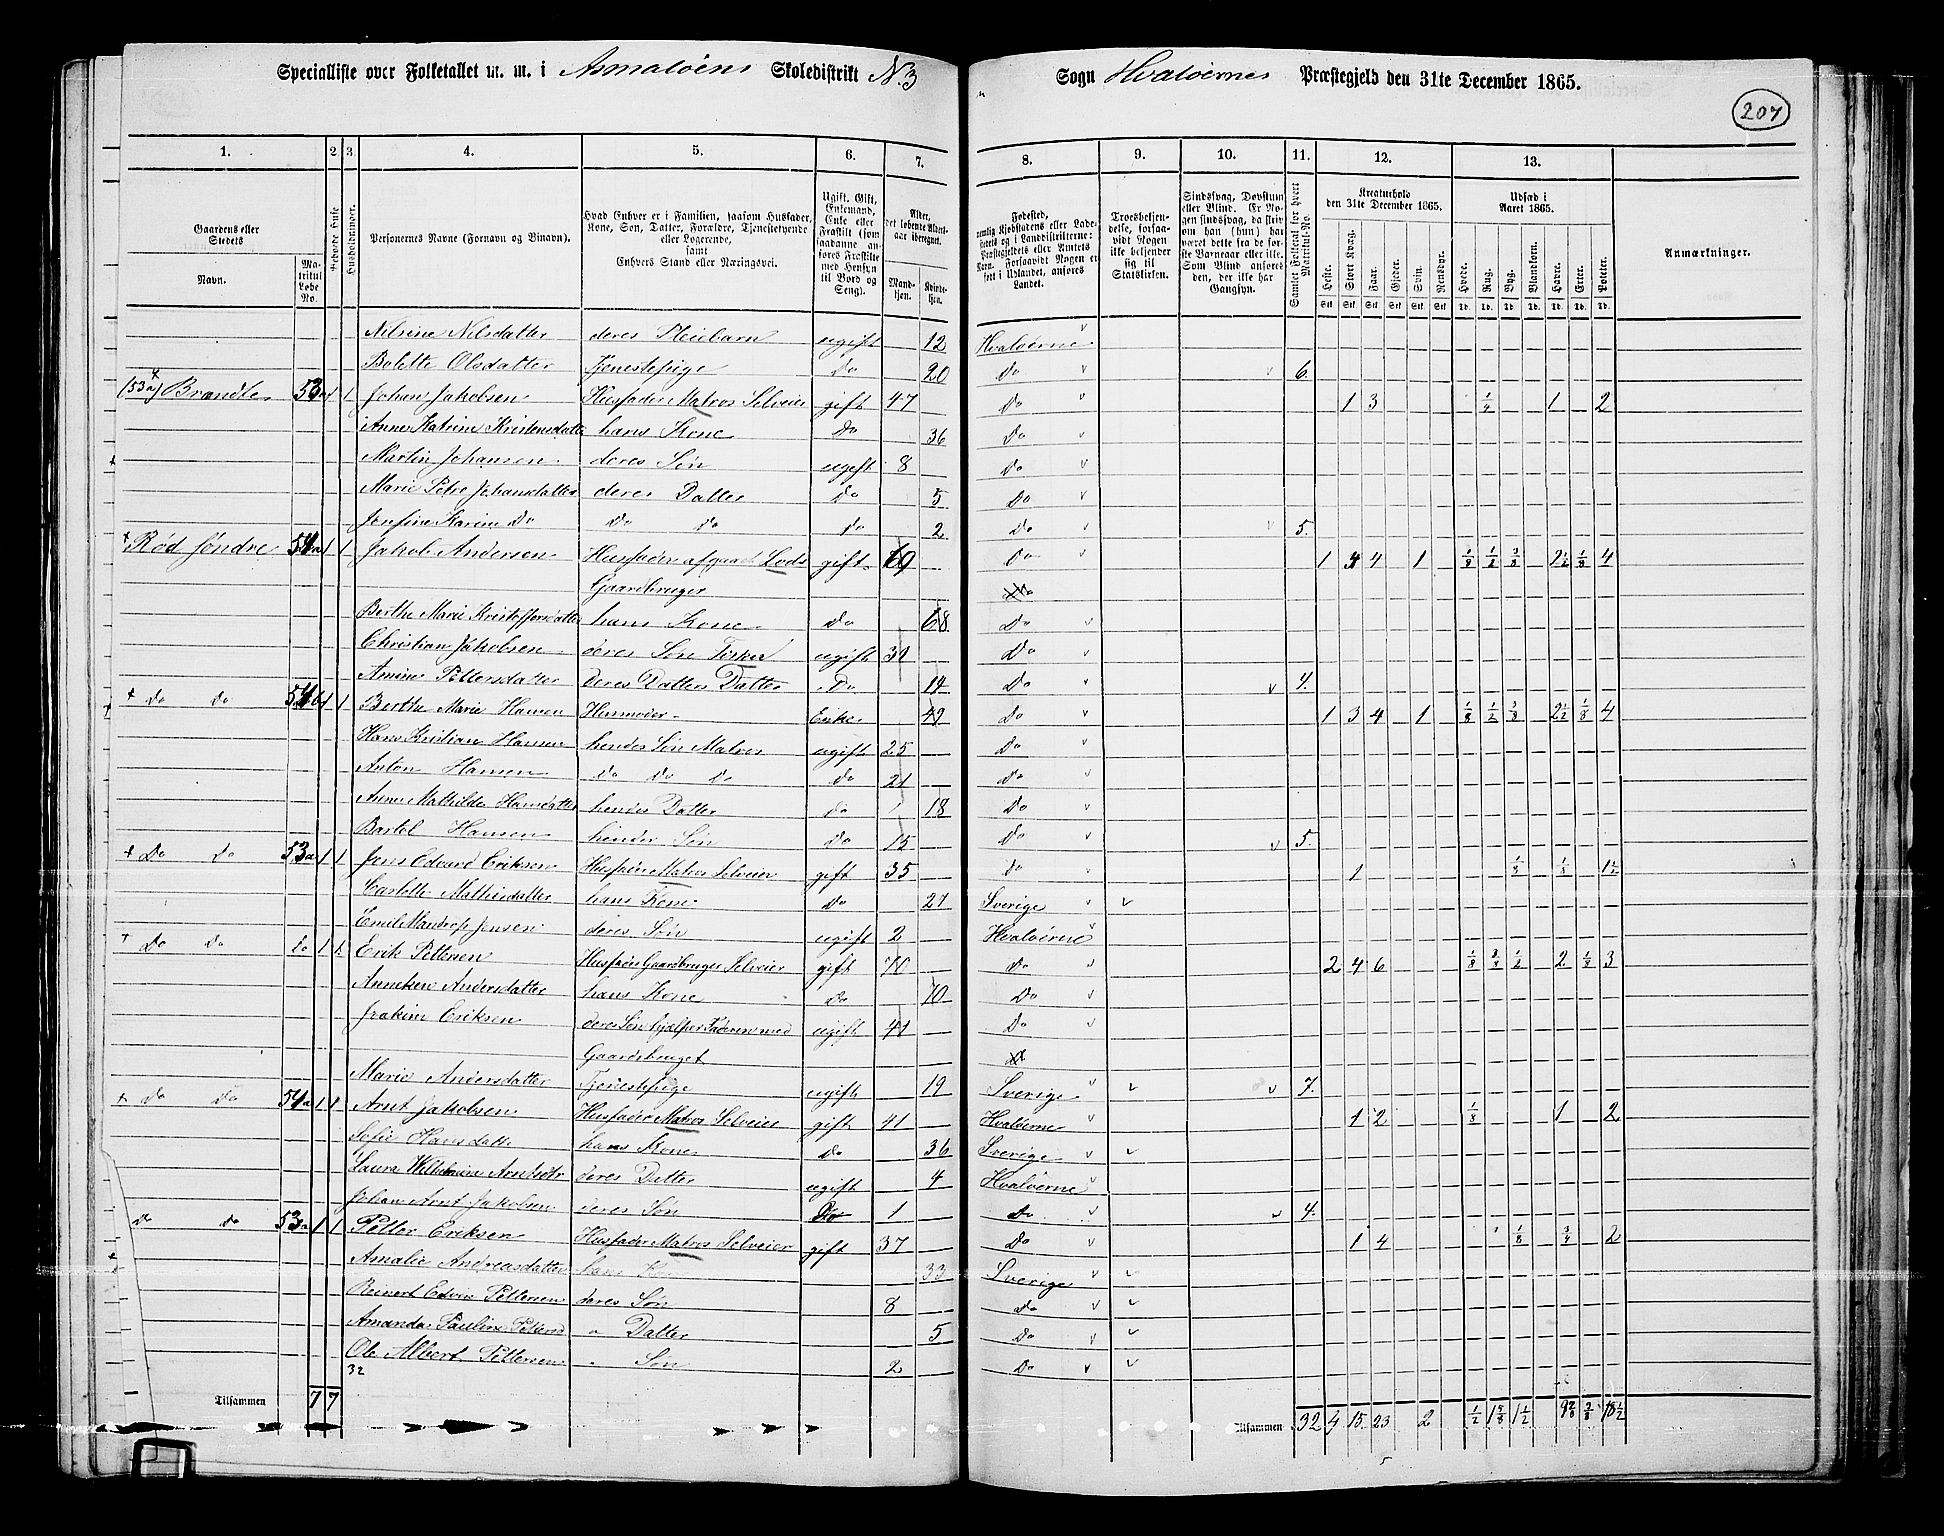 Specialliste over Folketallet m. m. i Asmaløens Skoledistrikt No 3 Sogn Hvaløernes Præstegjeld den 31te December 1865.
207
1. 2 3 4. 5. 6. 7. 8. 9. 10. 11. 12. 13.
Gaardens eller Stedets
Navn.
Matrikul Løbe No.
Beboede Huse
Husholdninger.
Personernes Navne (Fornavn og Binavn).
Hvad Enhver er i Familien, saasom Husfader, Kone, Søn, Datter, Forældre, Tjenestetyende eller Logerende, samt Enhvers Stand eller Næringsvei.
Ugift, Gift, Enkemand, Enke eller Fraskilt (som saadanne anføres Fraskilte med Hensyn til Bord og Seng).
Alder, det løbende Alders-aar iberegnet.
Mandkjøn. Kvindekjøn.
Fødested,
Troesbekjendelse, forsaavidt Nogen ikke bekjender sig til Statskirken.
Sindssvag, Døvstum eller Blind. Er Nogen sindssvag, da skrives om han (hun) har været dette fra de første Barneaar eller ille. Som Blind anføres den, der ikke har Gangsyn.
Samlet Folketal for hvert Matrikul-No.
Kreaturhold den 31te December 1865.
Heste. Stort Kvæg. Faar. Gjeder. Svin. Rensdyr.
Udsæd i Aaret 1865.
Hvede. Rug. Byg. Blandkorn. Havre. Erter. Poteter.
Anmærkninger.
Nilsine Nilsdatter deres Pleiebarn ugift 12 Hvaløerne
Bolette Olsdatter Tjenestepige Do 20 Do 6.
(53a) Brandte 53a 1 1 Johan Jakobsen Husfader Matros Selveier gift 47 Do 1 3 1/4 1 2
Anne Katrine Kristensdatter hans Kone Do 36 Do
Martin Johansen deres Søn ugift 8 Do
Marie Petre Johansdatter deres Datter Do 5 Do
Josefine Karine Do Do Do Do 2 Do 5.
Rød søndre 54a 1 1 Jakob Andersen Husfader afgaaet Lods gift 1 4 1 1/8 1/2 3/8 2 1/2 1/8 4
Gaardbruger
Berthe Marie Kristoffersdatter hans Kone Do 68 Do
Christian Jakobsen deres Søn Fisker ugift Do
Amine Pettersdatter deres Datters Datter Do 14 Do 4.
Do Do 54b 1 1 Berthe Marie Hansen Husmoder Enke 49 Do 1 3 4 1 1/8 1/2 3/8 2 1/2 1/8 4
Hans Kristian Hansen hendes Søn Matros ugift 25 Do
Anton Hansen Do Do Do Do 21 Do
Anne Mathilde Hansdatter hendes Datter Do 18 Do
Bartol Hansen hendes Søn Do 15 Do 5.
Do Do 53a 1 1 Jens Edvard Eriksen Husfader Matros Selveier gift 35 Do 1 1/8 1/8 1 1/2
Carlette Mathisdatter hans Kone Do 27 Sverige
Emil Mandrup Jensen deres Søn ugift 2 Hvaløerne
Do Do Do 1 1 Erik Pettersen Husfader Gaardbruger Selveier gift 70 Do 2 4 6 1/8 3/4 1/2 2 1/8 3
Anneken Andersdatter hans Kone Do 70 Do
Joakim Eriksen deres Søn hjælper Faderen med ugift 41 Do
Gaardsbruget
Marie Andersdatter Tjenestepige ugift 19 Sverige 7.
Do Do 54a 1 1 Arnt Jakobsen Husfader Matros Selveier gift 41 Hvaløerne 1 2 1/8 1 2
Sofie Hansdatter hans Kone Do 36 Sverige
Laura Wilhelmine Arntsdtr deres Datter ugift 4 Hvaløerne
Johan Arnt Jakobsen deres Søn Do 1 Do 4.
Do Do 53a 1 1 Petter Eriksen Husfader Matros Selveier gift 37 Do 1 4 1/8 3/4 2
Amalie Andreasdatter hans Kone 33 Sverige
Reinert Edvin Pettersen deres Søn 8 Do
Amanda Pauline Petters " Datter 5 Do
Ole Albert Pettersen " Søn 2 Do
32
Tilsammen 7 7 Tilsammen 32 4 15 23 2 1/2 1 5/8 1 1/2 9 2/8 18 1/2